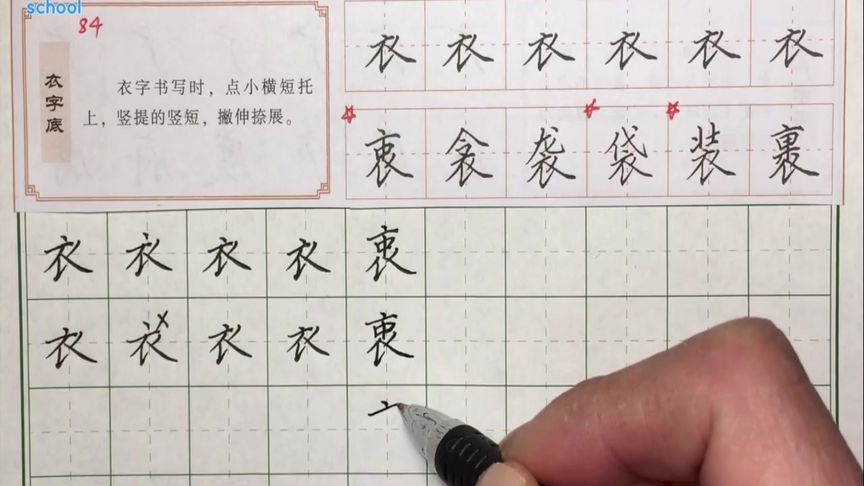 school
84
衣字底
衣字书写时，点小横短托
上，竖提的竖短，撇伸捺展。
衣 衣 衣 衣 衣 衣
衷 衾 袭 袋 装 裹
衣 衣 衣 衣 衷
衣 衣 衣 衣 衷